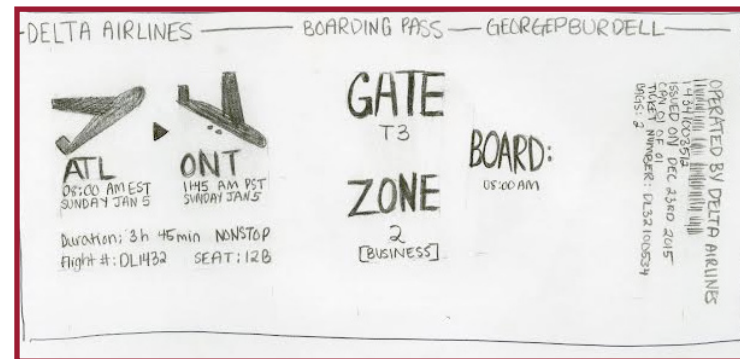 DELTA AIRLINES BOARDING PASS GEORGE P BURDELL
ATL
08:00 AM EST
SUNDAY JAN 5
ONT
11:45 AM PST
SUNDAY JAN 5
Duration: 3h 45min NONSTOP
Flight #: DL1432 SEAT: 12B
GATE
T3
ZONE
2
[BUSINESS]
BOARD:
08:00 AM
OPERATED BY DELTA AIRLINES
ISSUED ON DEC 23RD 2015
CPN 01 OF 01
TICKET NUMBER: DL32100534
BAGS: 2